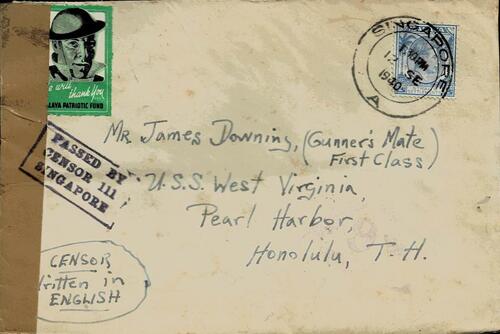 we will
thank you
MALAYA PATRIOTIC FUND
SINGAPORE
SE
1940
A
PASSED BY
CENSOR 111
SINGAPORE
Mr James Downing, (Gunner's Mate
First Class)
U.S.S. West Virginia,
Pearl Harbor,
Honolulu, T. H.
CENSOR
Written in
ENGLISH